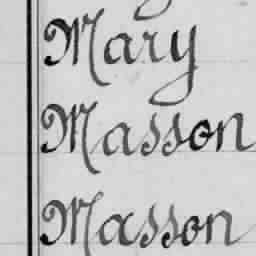 Mary
Masson
Masson